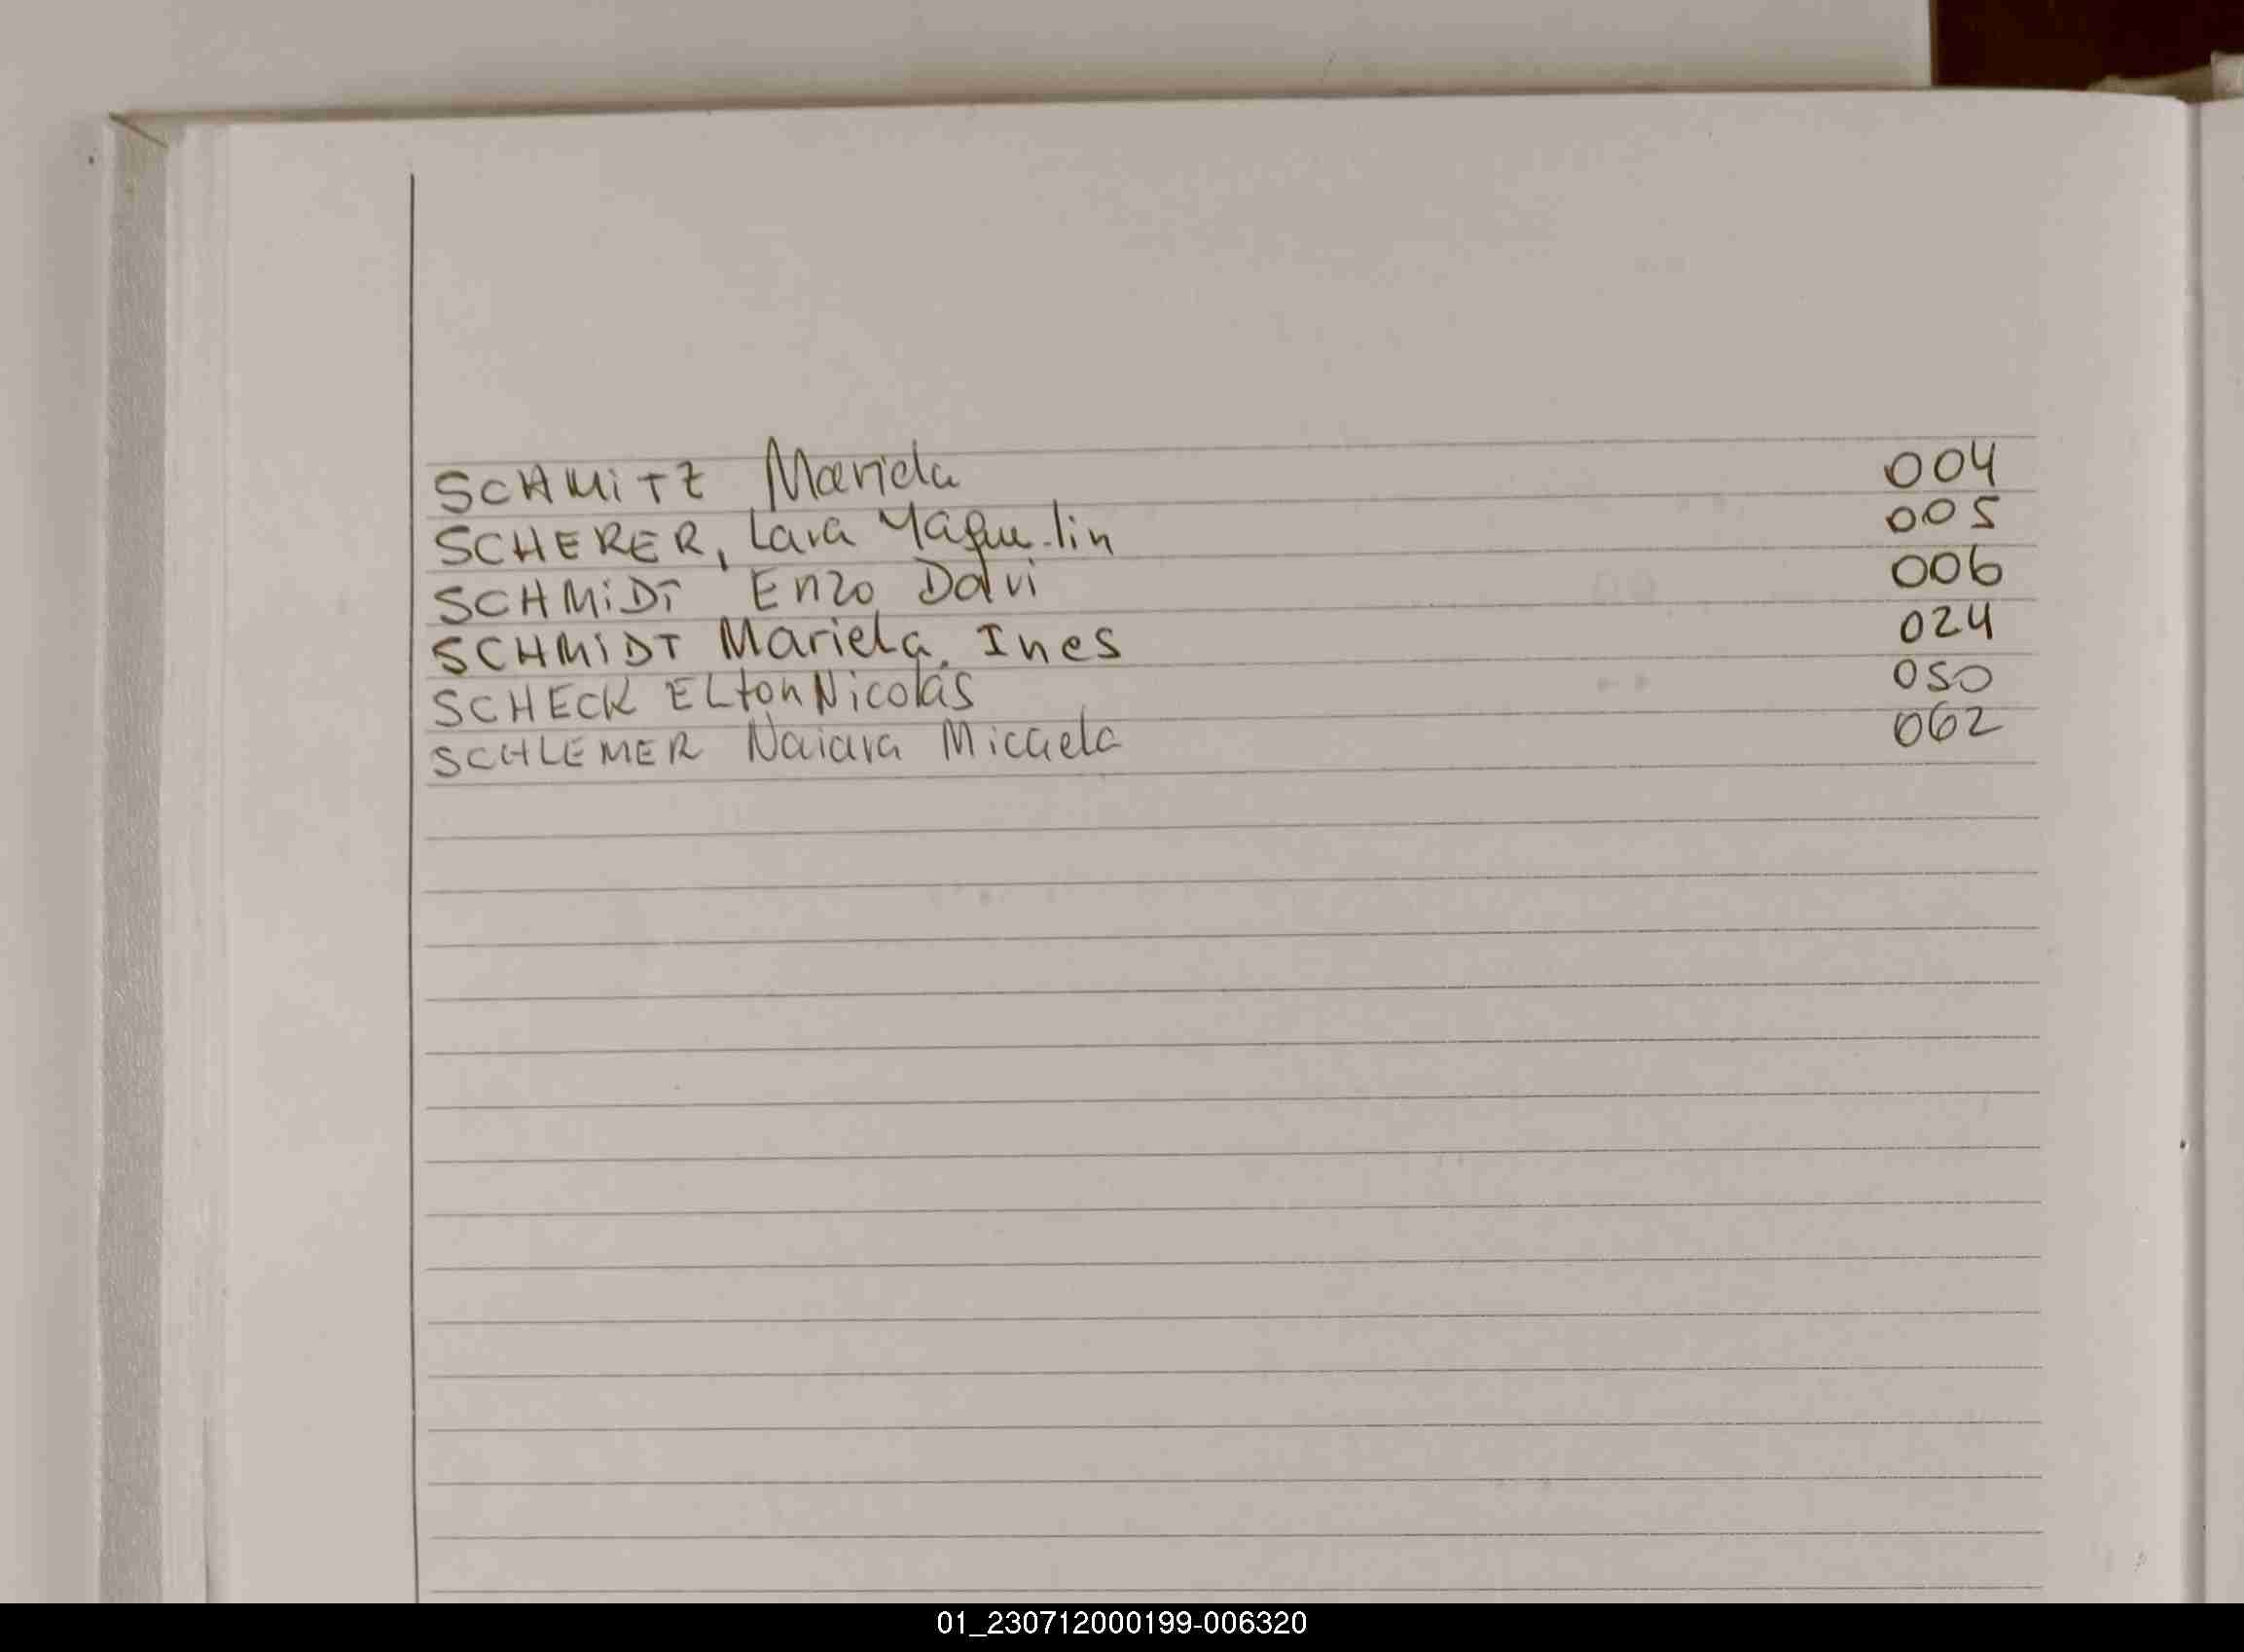 SCHMiTZ Mariela 004
SCHERER, Lara Yaque-lin 005
SCHMiDT Enzo Davi 006
SCHMiDT Mariela Ines 024
SCHECK ELton Nicolás 050
SCHLEMER Naiara Micaela 062
01_230712000199-006320